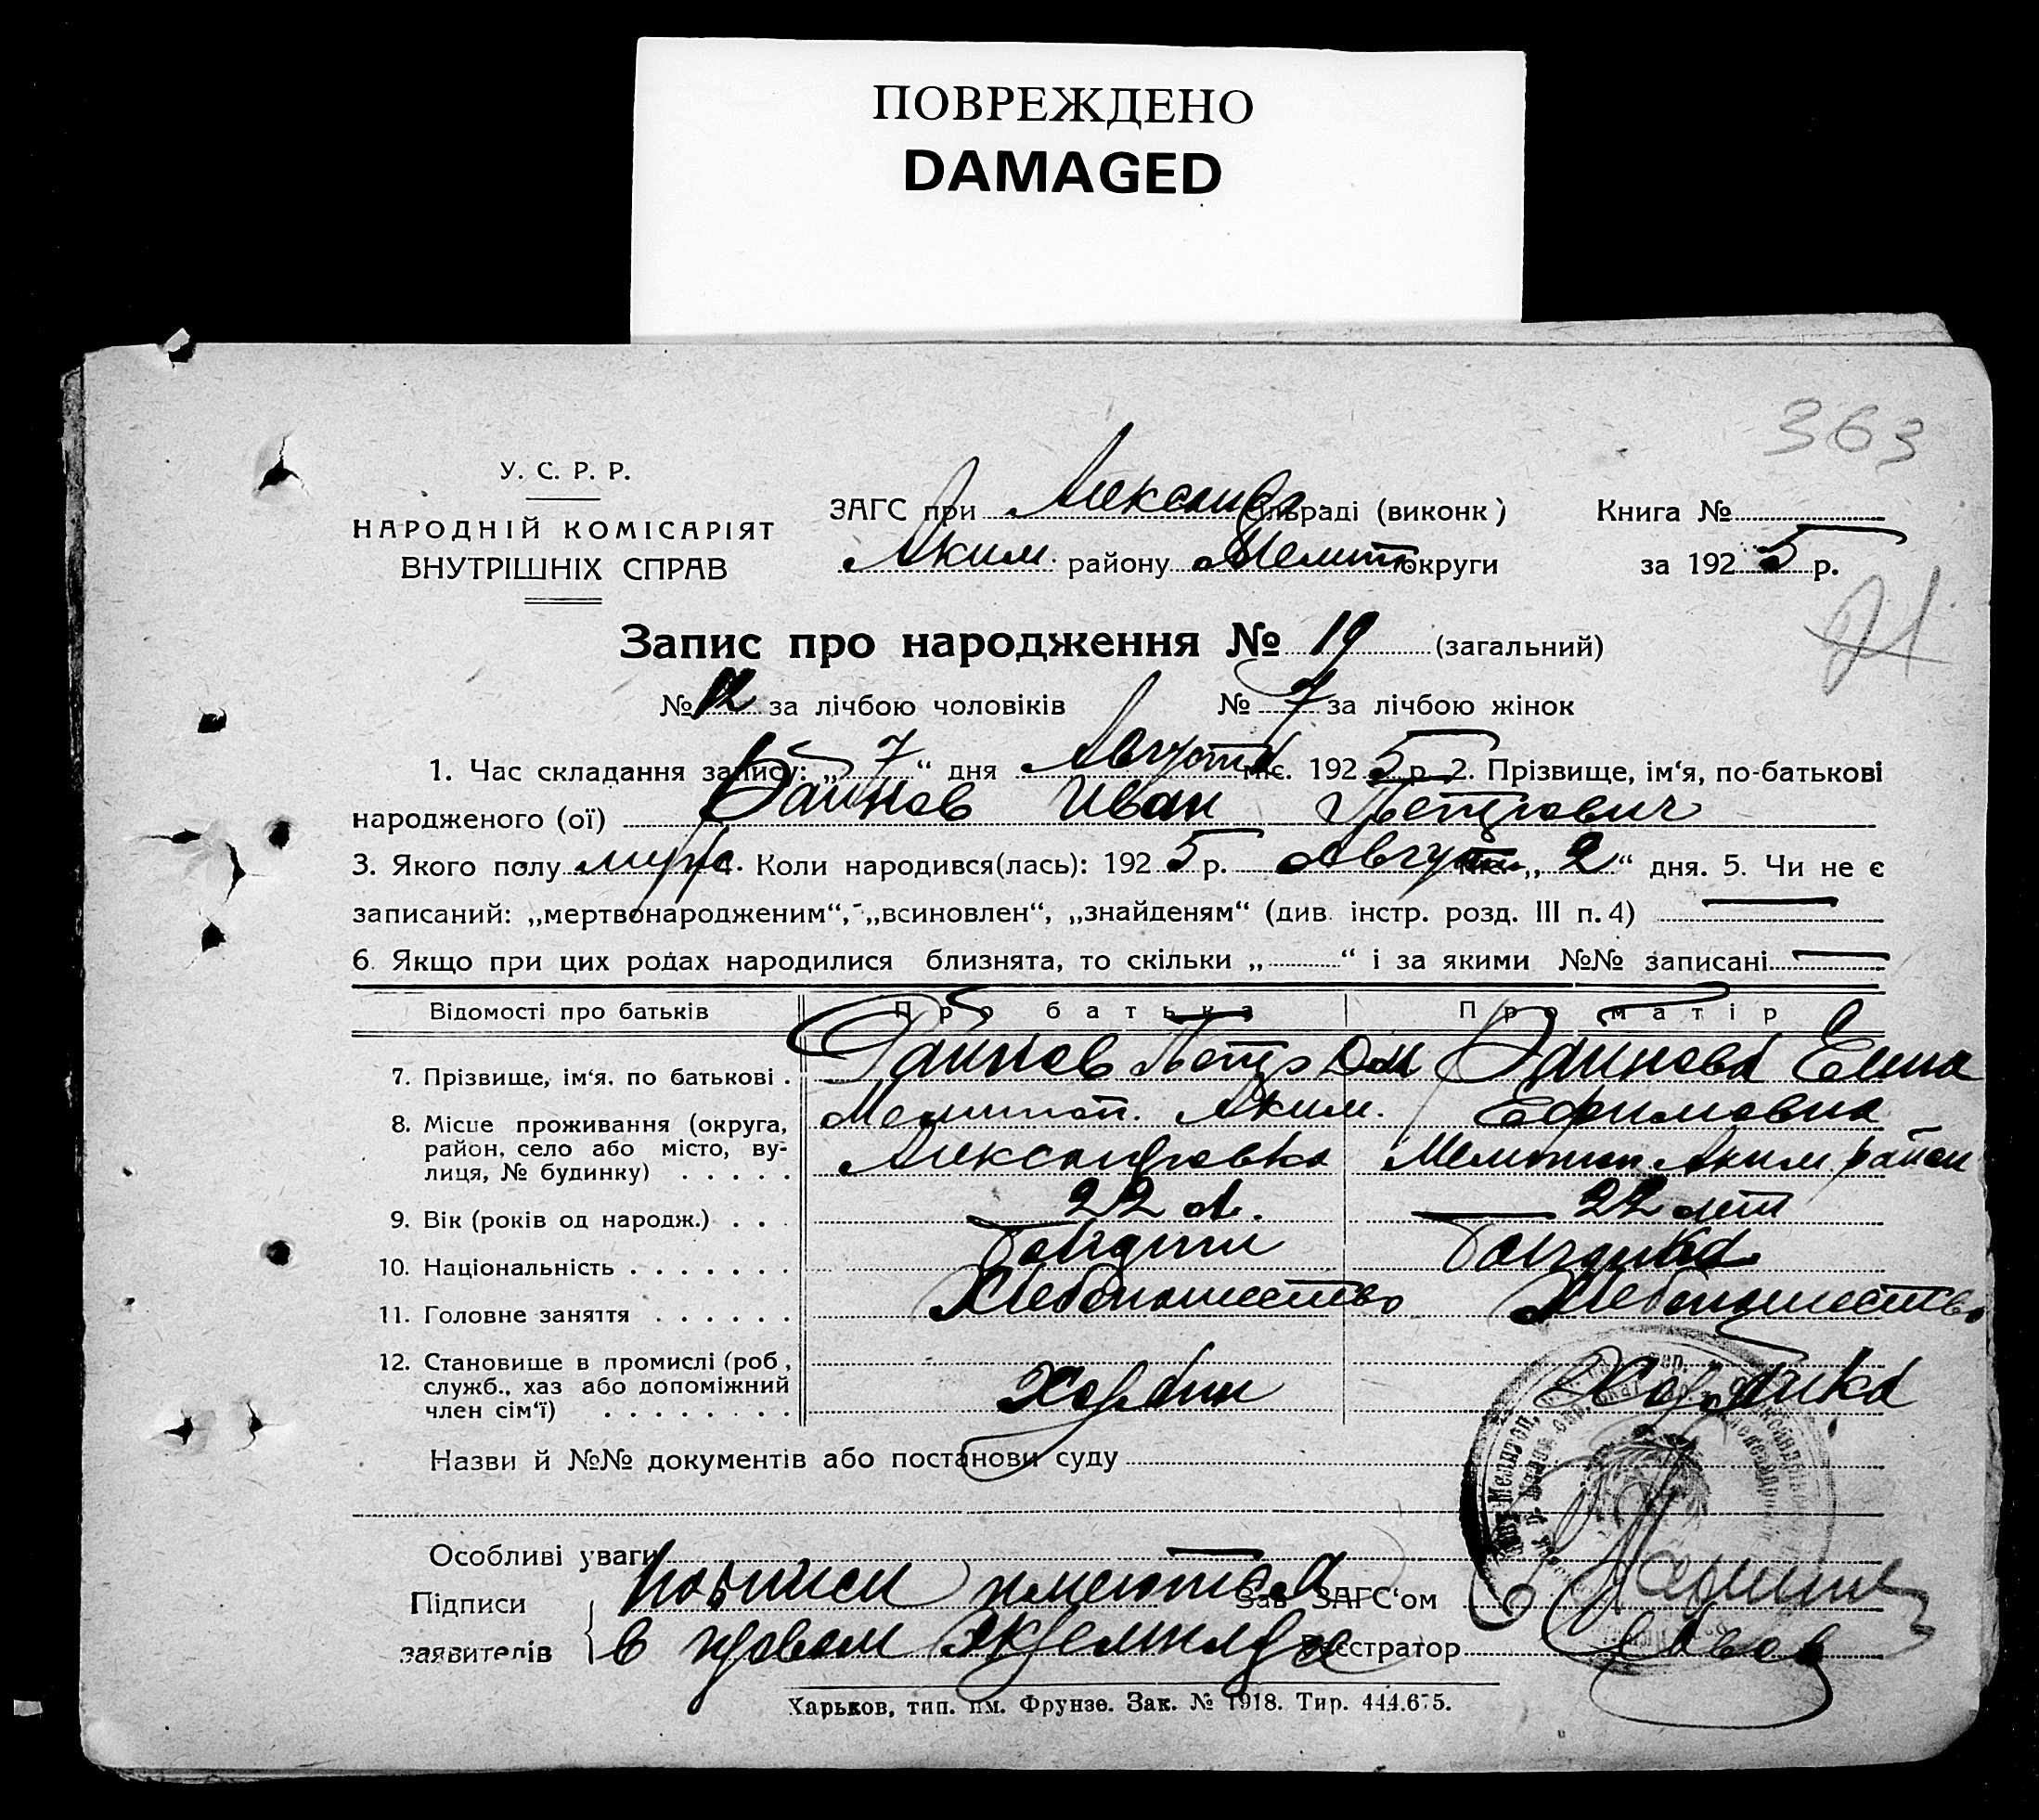 ПОВРЕЖДЕНО
DAMAGED
363
У. С. Р. Р.
НАРОДНІЙ КОМІСАРІЯТ
ВНУТРІШНІХ СПРАВ
ЗАГС при Александр сільраді (виконк)
Книга №
Аким. району Мелит округи
за 1925 р.
21
Запис про народження № 19 (загальний)
№ 12 за лічбою чоловіків № 7 за лічбою жінок
1. Час складання запису: „7“ дня Августа міс. 1925 р. 2. Прізвище, ім'я, по-батькові
народженого (ої) Иван Петрович
3. Якого полу муж 4. Коли народився(лась): 1925 р. Август міс. „2“ дня. 5. Чи не є
записаний: „мертвонародженим“, „всиновлен“, „знайденям“ (див. інстр. розд. III п. 4) —
6. Якщо при цих родах народилися близнята, то скільки „ “ і за якими №№ записані —
Відомості про батьків Про батька Про матір
7. Прізвище, ім'я, по батькові . Петр Елена
Ефимовна
8. Місце проживання (округа, район, село або місто, вулиця, № будинку) . . . . . Мелитоп. Аким. Александровка Мелитоп Аким район
9. Вік (років од народж.) . . . 22 л. 22 лет
10. Національність . . . . . . .
11. Головне заняття . . . . . . Хлебопашество Хлебопашество
12. Становище в промислі (роб., служб., хаз або допоміжний член сім'ї) . . . . . . . . Хозяин Хозяйка
Назви й №№ документів або постанови суду
Особливі уваги
Підписи
заявителів
подписи имеются
в првом экземпляре
Зав ЗАГС'ом
Реєстратор
Харьков, тип. им. Фрунзе. Зак. № 1918. Тир. 444.675.